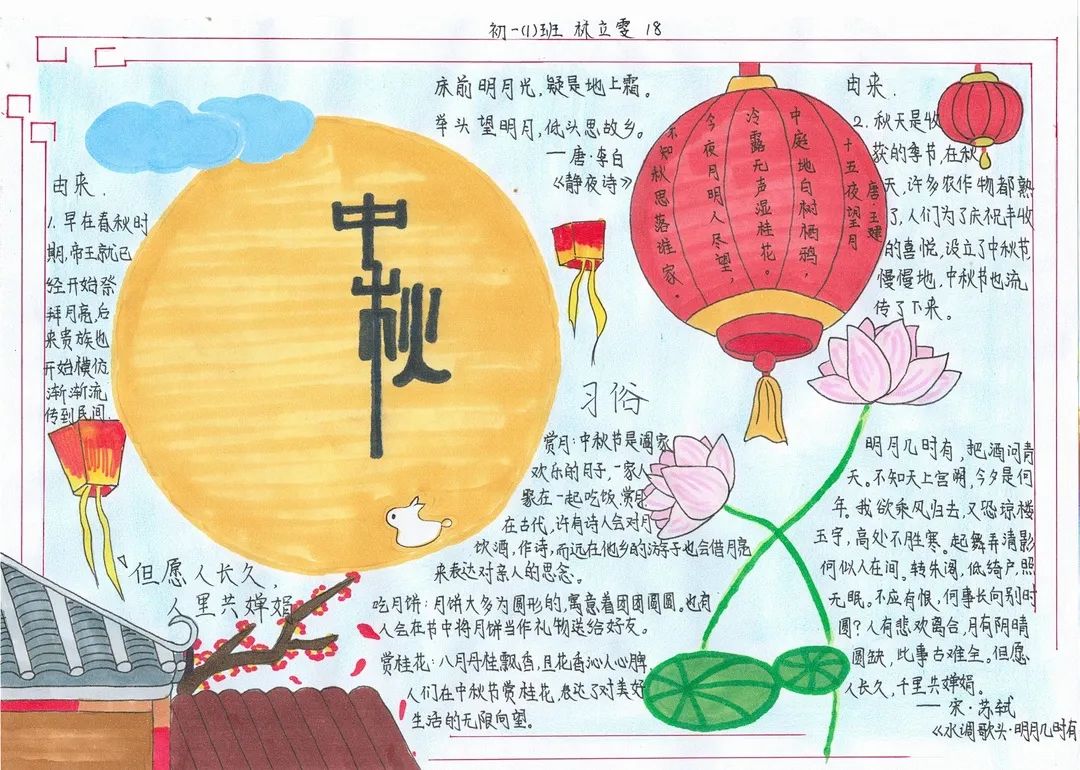 初一(1)班 林立雯 18
由来.
1.早在春秋时
期,帝王就已
经开始祭
拜月亮,后
来贵族也
开始模仿
渐渐流
传到民间.
中秋
床前明月光,疑是地上霜。
举头望明月,低头思故乡。
—唐·李白
《静夜诗》
十五夜望月
唐·王建
中庭地白树栖鸦,
冷露无声湿桂花。
今夜月明人尽望,
不知秋思落谁家.
由来.
2.秋天是收
获的季节,在秋
天,许多农作物都熟
了,人们为了庆祝丰收
的喜悦,设立了中秋节,
慢慢地,中秋节也流
传了下来。
习俗
赏月:中秋节是阖家
欢乐的日子,一家人
聚在一起吃饭.赏月
在古代,许有诗人会对月
饮酒,作诗,而远在他乡的游子也会借月亮
来表达对亲人的思念。
吃月饼:月饼大多为圆形的,寓意着团团圆圆。也有
人会在节中将月饼当作礼物送给好友。
赏桂花:八月丹桂飘香,且花香沁人心脾,
人们在中秋节赏桂花,表达了对美好
生活的无限向望。
但愿人长久,
人里共婵娟
明月几时有,把酒问青
天。不知天上宫阙,今夕是何
年。我欲乘风归去,又恐琼楼
玉宇,高处不胜寒。起舞弄清影
何似人在间。转朱阁,低绮户,照
无眠。不应有恨,何事长向别时
圆?人有悲欢离合,月有阴晴
圆缺,此事古难全。但愿
人长久,千里共婵娟。
—宋·苏轼
《水调歌头·明月几时有